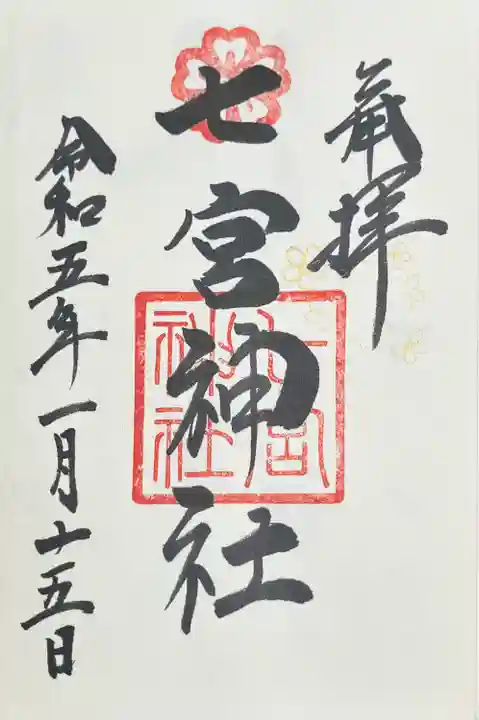 奉拝
七宮神社
七宮神社
令和五年一月十五日